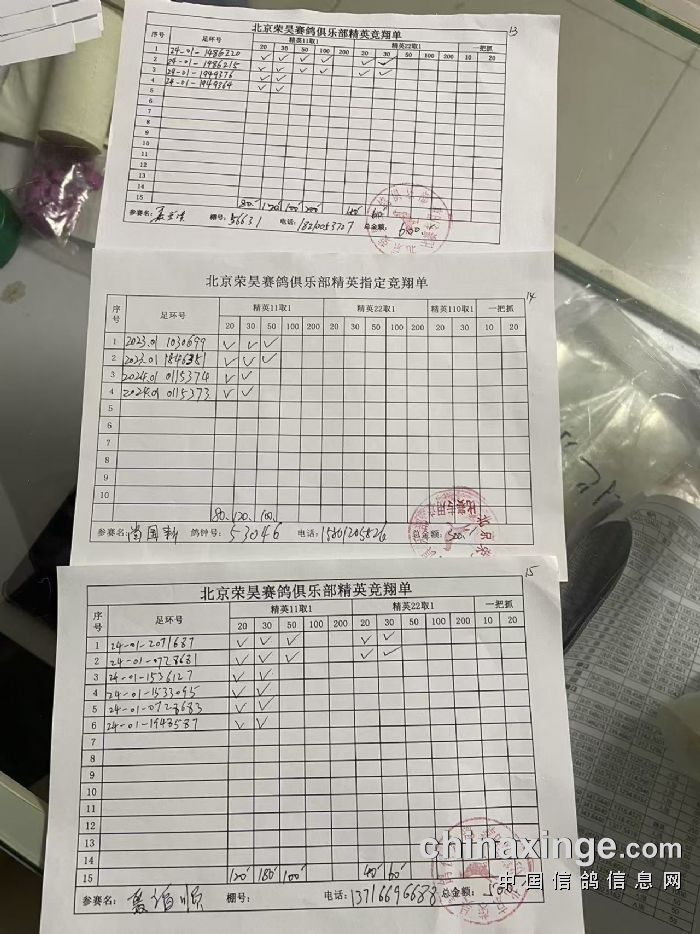 13
北京荣昊赛鸽俱乐部精英竞翔单
序号 足环号 精英11取1 精英22取1 一把抓
20 30 50 100 200 20 30 50 100 200 10 20
1 24-01-1486220 ✓ ✓ ✓ ✓ ✓ ✓
2 24-01-1986215 ✓ ✓ ✓ ✓ ✓ ✓
3 24-01-1949376 ✓ ✓
4 24-01-1949364 ✓ ✓
5
6
7
8
9
10
11
12
13
14
15 80 120 100 200 40 60
参赛名: 棚号: 56631 电话: 总金额: 600
14
北京荣昊赛鸽俱乐部精英指定竞翔单
序号 足环号 精英11取1 精英22取1 精英110取1 一把抓
20 30 50 100 200 20 30 50 100 200 20 30 10 20
1 2023.01 1030699 ✓ ✓ ✓
2 2023.01 ✓ ✓ ✓
3 2024.01 0115374 ✓ ✓
4 2024.01 0115373 ✓ ✓
5
6
7
8
9
10
80 120 100
参赛名: 尚国新 鸽钟号: 53046 电话: 13801205826 总金额: 300
15
北京荣昊赛鸽俱乐部精英竞翔单
序号 足环号 精英11取1 精英22取1 一把抓
20 30 50 100 200 20 30 50 100 200 10 20
1 24-01-2071687 ✓ ✓ ✓ ✓ ✓
2 24-01-0728681 ✓ ✓ ✓ ✓ ✓
3 24-01-1536127 ✓ ✓
4 24-01-1533095 ✓ ✓
5 24-01-0728683 ✓ ✓
6 24-01-1948587 ✓ ✓
7
8
9
10
11
12
13
14
15 120 180 100 40 60
参赛名: 棚号: 电话: 13716696688 总金额: 500
chinaxinge.com
中国信鸽信息网